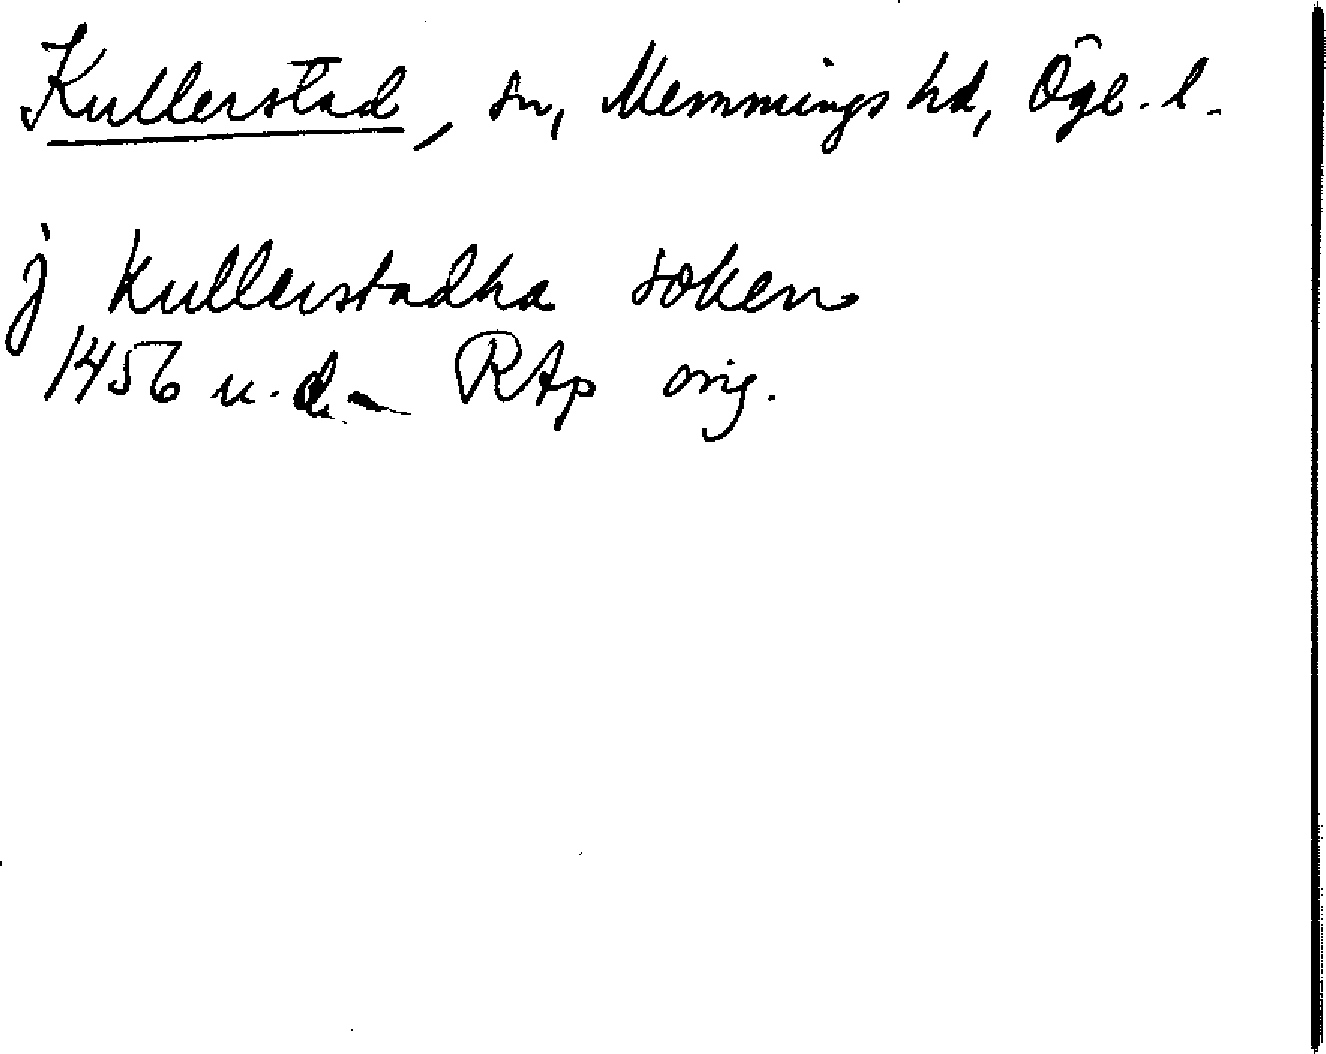 Kullerstad, sn, Memmings hd, Ögl. l.
j kullerstadha soken
1456 u.d. RAp orig.